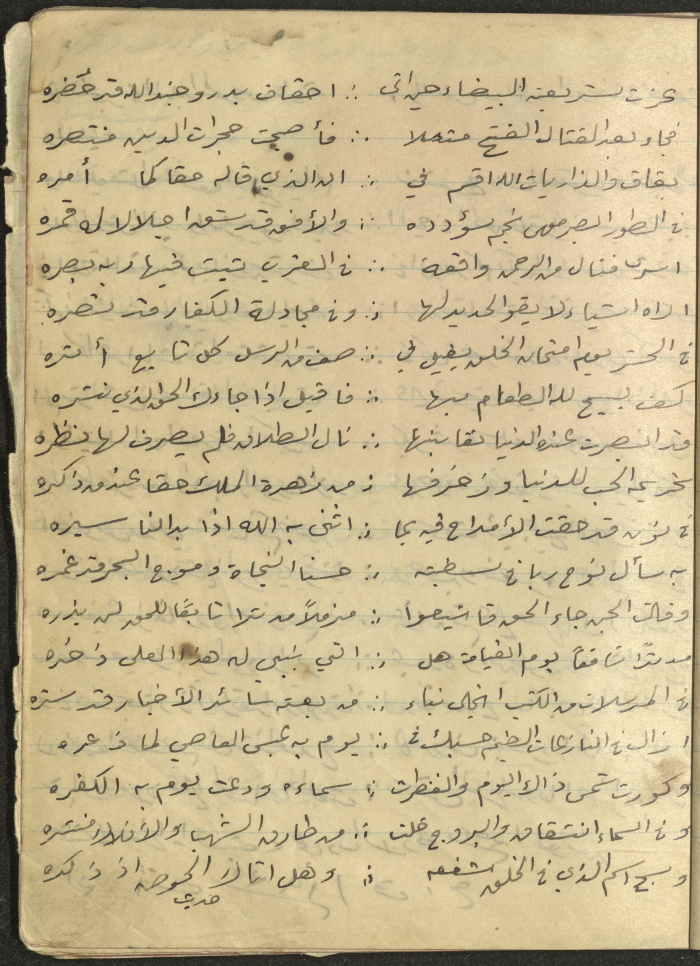 عزت بشريعته البيضاء حين اتى ∴ احقاف بدر وجند الله قد حضره
فجاء بعد القتال الفتح متصلا ∴ فأصبحت حجرات الدين منتصره
بقاف والذاريات الله اقسم في ∴ ان الذي قاله حقا كما أمره
في الطور ابصر موسى نجم سؤدده ∴ والأفق قد شق اجلالا له قمره
اسرى فنال من الرحمن واقعة ∴ في القرب ثبت فيها ربه بصره
اراه اشياء لا يقوى الحديد لها ∴ وفي مجادلة الكفار قد نصره
في الحشر يوم امتحان الخلق يقبل في ∴ صف من الرسل كل تابع أثره
كف يسبح لله الطعام بها ∴ فاقبل اذا جاءك الحق الذي نشره
قد ابصرت عنده الدنيا تغابنها ∴ نال الطلاق فلم يصرف لها نظره
تحريمه الحب للدنيا وزخرفها ∴ من زهرة الملك حقا عند من ذكره
في نون قد حقت الأمداح فيه بما ∴ اثنى به الله اذا بدا لنا سيره
به سأل نوح ربا في سفينته ∴ حسن النجاة وموج البحر قد غمره
وقالت الجن جاء الحق فاتبعوا ∴ مزملاً مدثرا تابعًا للحق لن يذره
مدثرًا شافعًا يوم القيامة هل ∴ اتى نبي له هذا العلى ذخره
في المرسلات من الكتب انجلى نباء ∴ من بعثه سائر الأخبار قد ستره
ازال في النازعات الضيم حسبك في ∴ يوم به عبس العاصي لما ذعره
وكورت شمس ذاك اليوم وانفطرت ∴ سماءه ودعت يوم به الكفره
وفي السماء انشقاق والبروج خلت ∴ من طارق الشهب والأفلاك منتشره
وسبح اسم الذي في الخلق شفعه ∴ وهل اتاك الحوض اذ ذكره
حديث